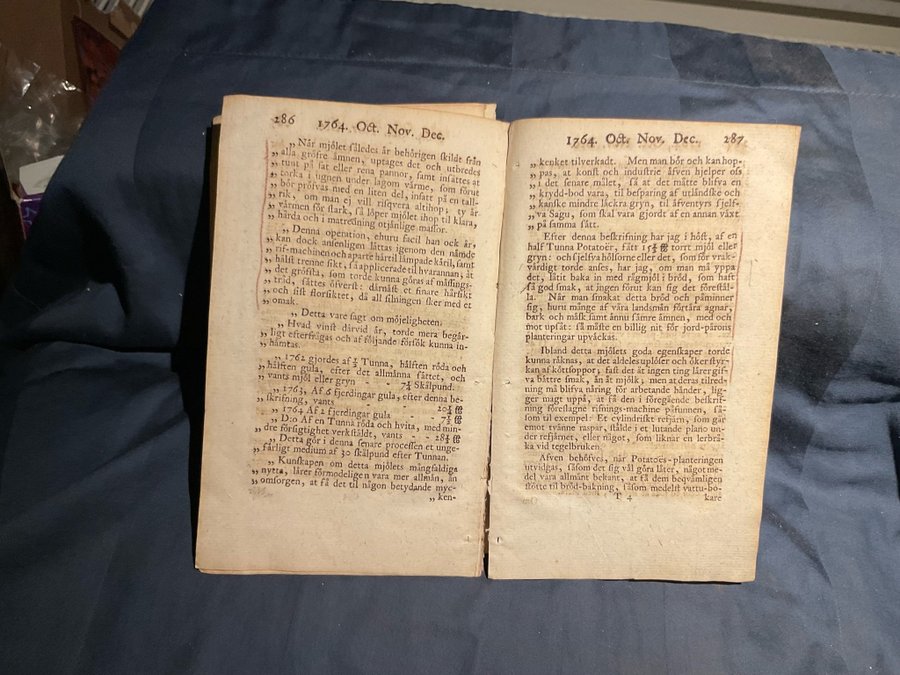 286 1764. Oct. Nov. Dec.
„ När mjölet således är behörigen skildt från
„ alla gröfre ämnen, uptages det och utbredes
„ tunt på fat eller rena pannor, samt insättes at
„ torka i ugnen under lagom värme, som förut
„ bör pröfvas med en liten del, insatt på en tall-
„ rik, om man ej vill risqvera altihop; ty är
„ värmen för stark, så löper mjölet ihop til klara,
„ hårda och i matredning otjänlige massor.
„ Denna operation, ehuru facil han ock är,
„ kan dock ansenligen lättas igenom den nämde
„ rif-machinen och aparte härtil lämpade käril, samt
„ hälst trenne sikt, så applicerade til hvarannan, at
„ det gröfsta, som torde kunna göras af mässings-
„ tråd, sättes öfverst: därnäst et finare hårsikt
„ och sist florsiktet, då all silningen sker med et
„ omak.
„ Detta vare sagt om möjeligheten.
„ Hvad vinst därvid är, torde mera begär-
„ ligt efterfrågas och af följande försök kunna in-
„ hämtas.
„ 1762 gjordes af ½ Tunna, hälften röda och
„ hälften gula, efter det allmänna sättet, och
„ vants mjöl eller gryn - - 7½ Skålpund.
„ 1763. Af 6 fjerdingar gula, efter denna be-
„ skrifning, vants - - 20½ ℔
„ 1764 Af 2 fjerdingar gula - - 7½ ℔
„ D:o Af en Tunna röda och hvita, med min-
„ dre försigtighet verkställdt, vants - - 28½ ℔
„ Detta gör i denna senare processen et unge-
„ färligt medium af 30 skålpund efter Tunnan.
„ Kunskapen om detta mjölets mångfaldiga
„ nytta, lärer förmodeligen vara mer allmän, än
„ omsorgen, at få det til någon betydande myc-
„ ken-
1764. Oct. Nov. Dec. 287
„ kenket tilverkadt. Men man bör och kan hop-
„ pas, at konst och industrie äfven hjelper oss
„ i det senare målet, så at det måtte blifva en
„ krydd-bod vara, til besparing af utländske och
„ kanske mindre läckra gryn, til äfventyrs sjelf-
„ va Sagu, som skal vara gjordt af en annan växt
„ på samma sätt.
Efter denna beskrifning har jag i höst, af en
half Tunna Potatoër, fått 15½ ℔ torrt mjöl eller
gryn: och sjelfva hölsorne eller det, som för vrak-
värdigt torde anses, har jag, om man må yppa
det, lätit baka in med rågmjöl i bröd, som haft
så god smak, at ingen förut kan sig det föreställ-
la. När man smakat detta bröd och påminner
sig, huru månge af våra landsmän förtära agnar,
bark och mask samt ännu sämre ämnen, med och
mot upsåt: så måste en billig nit för jord-pärons
planteringar upväckas.
Ibland detta mjölets goda egenskaper torde
kunna räknas, at det aldeles uplöser och ökerstyr-
kan af köttsoppor; fast det åt ingen ting lärer gif-
va bättre smak, än åt mjölk; men at deras tilred-
ning må blifva näring för arbetande händer, lig-
ger magt uppå, at få den i föregående beskrif-
ning föreslagne rifnings-machine påfunnen, så-
som til exempel: Et cylindriskt refjärn, som går
emot tvänne raspar, stälde i et lutande plano un-
der refjärnet, eller något, som liknar en lerbrå-
ka vid tegelbruken.
Äfven behöfves, när Potatoës-planteringen
utvidgas, såsom det sig väl göra låter, något me-
del vara allmänt bekant, at få dem beqvämligen
stötte til bröd-bakning, såsom medelst vattu-bo-
T 4 kare